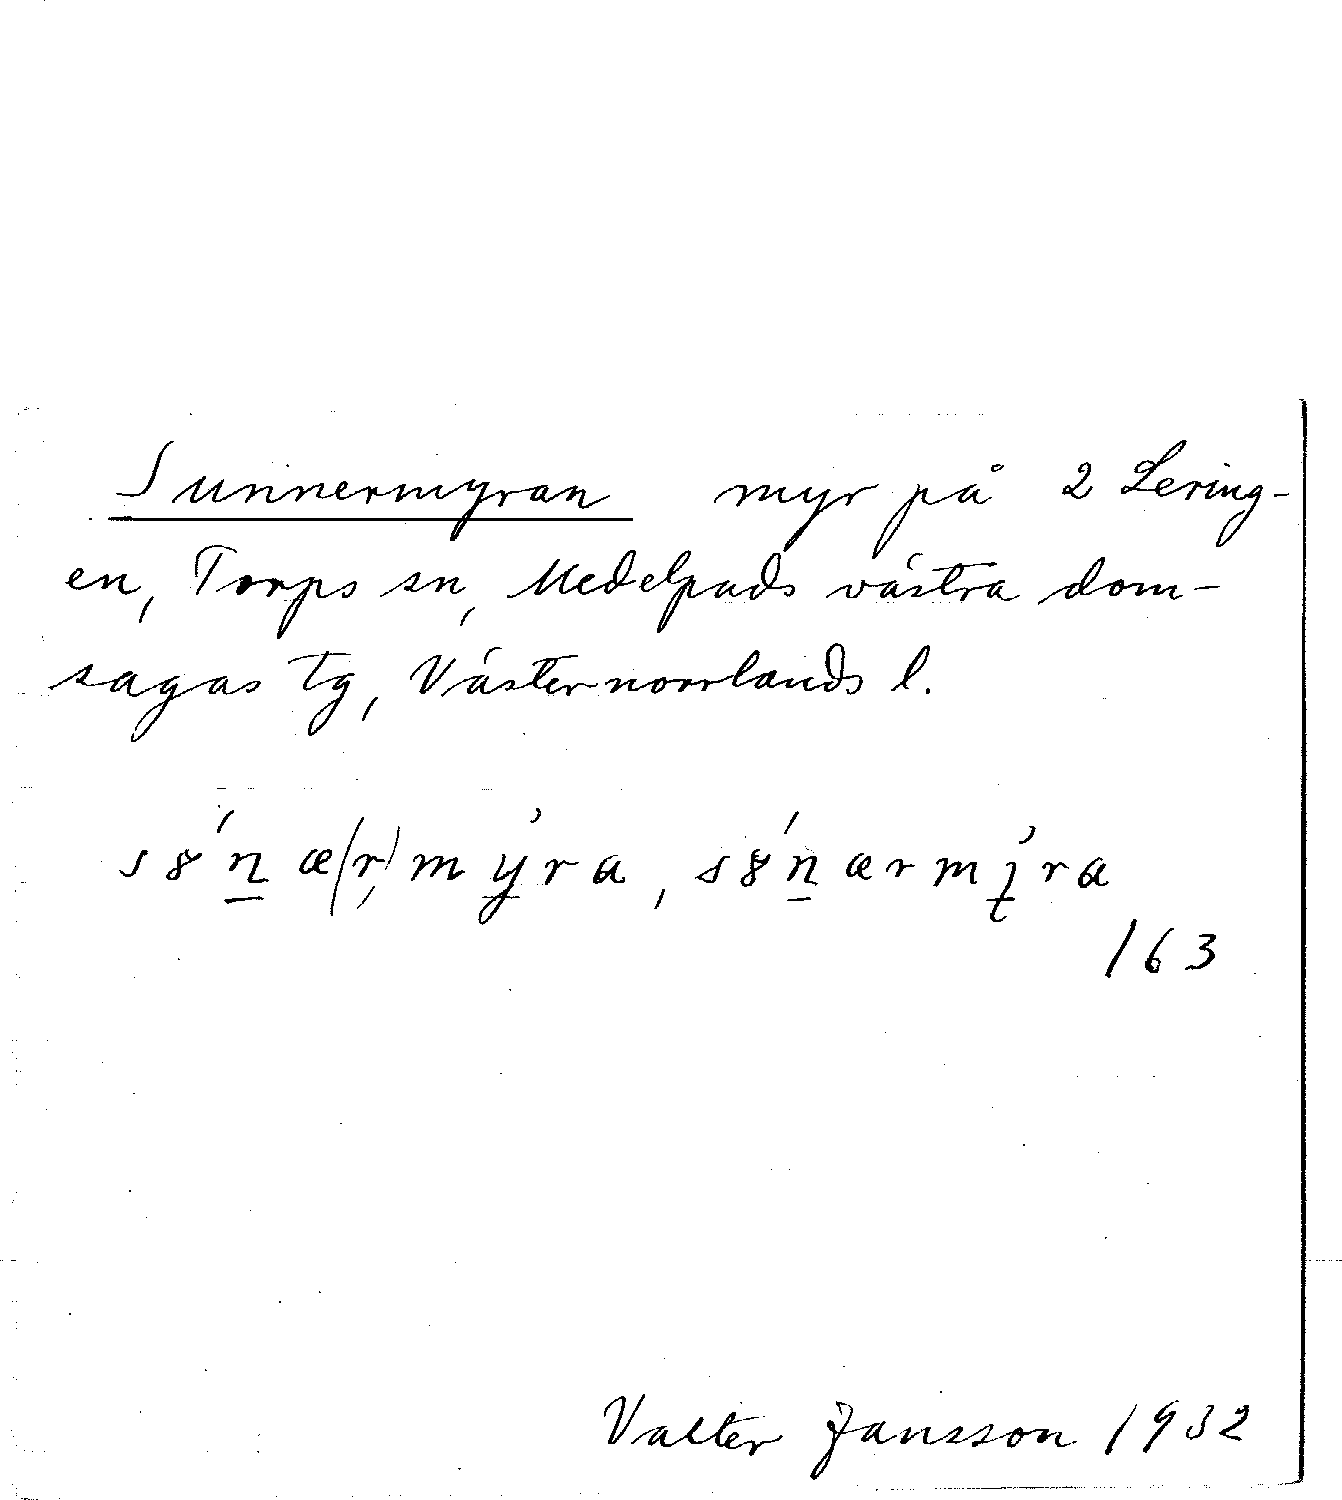 Sunnermyran myr på 2 Lering-
en, Torps sn, Medelpads västra dom-
sagas tg, Västernorrlands l.
163
Valter Jansson 1932